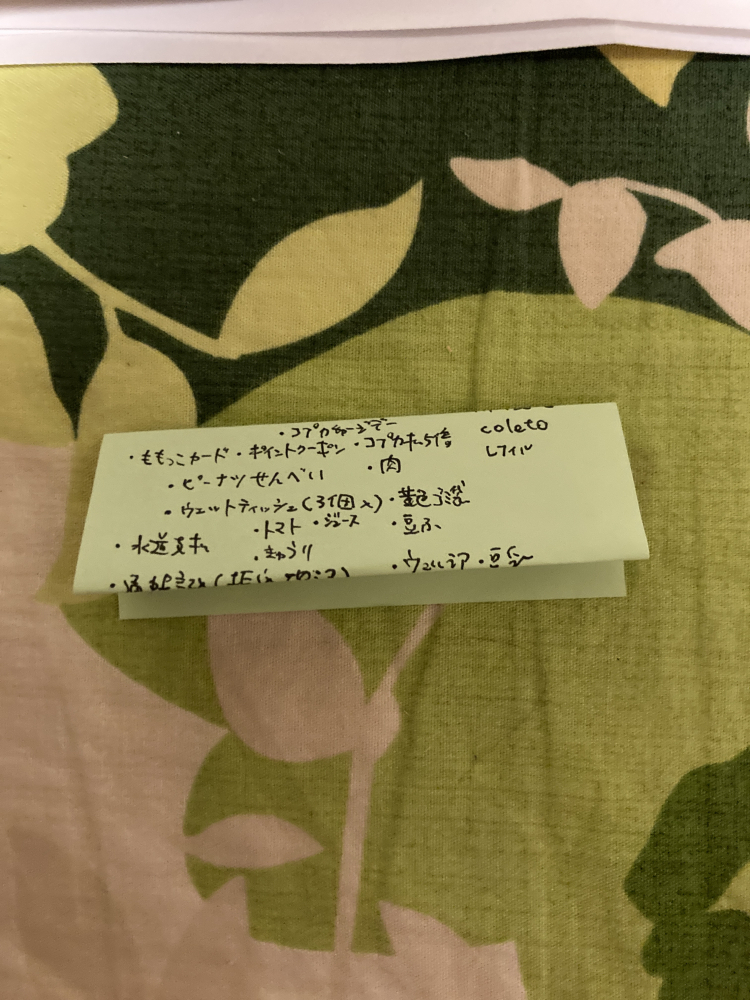 ・コプカチャージデー
coleto
・ももっこカード ・ポイントクーポン ・コプカポ5倍
レフィル
・ピーナツせんべい ・肉
・ウェットティッシュ(3個入)
・トマト ・ジュース ・豆ふ
・水道
・きゅうり
・ウェルシア ・豆乳